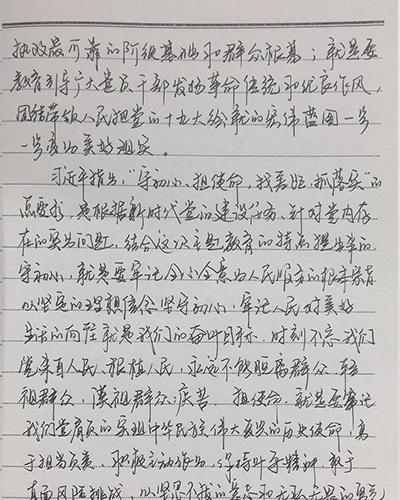 执政最可靠的阶级基础和群众根基；就是要
教育引导广大党员干部发扬革命传统和优良作风，
团结带领人民把党的十九大绘就的宏伟蓝图一步
一步变为美好现实。
习近平指出，“守初心、担使命，找差距、抓落实”的
总要求，是根据新时代党的建设任务、针对党内存
在的突出问题，结合这次主题教育的特点提出来的。
守初心，就是要牢记全心全意为人民服务的根本宗旨
以坚定的理想信念坚守初心，牢记人民对美好
生活的向往就是我们的奋斗目标，时刻不忘我们
党来自人民、根植人民，永远不能脱离群众、轻
视群众、漠视群众疾苦。担使命，就是要牢记
我们党肩负的实现中华民族伟大复兴的历史使命，勇
于担当负责，积极主动作为，保持斗争精神，敢于
直面风险挑战，以坚忍不拔的意志和无私无畏的勇气